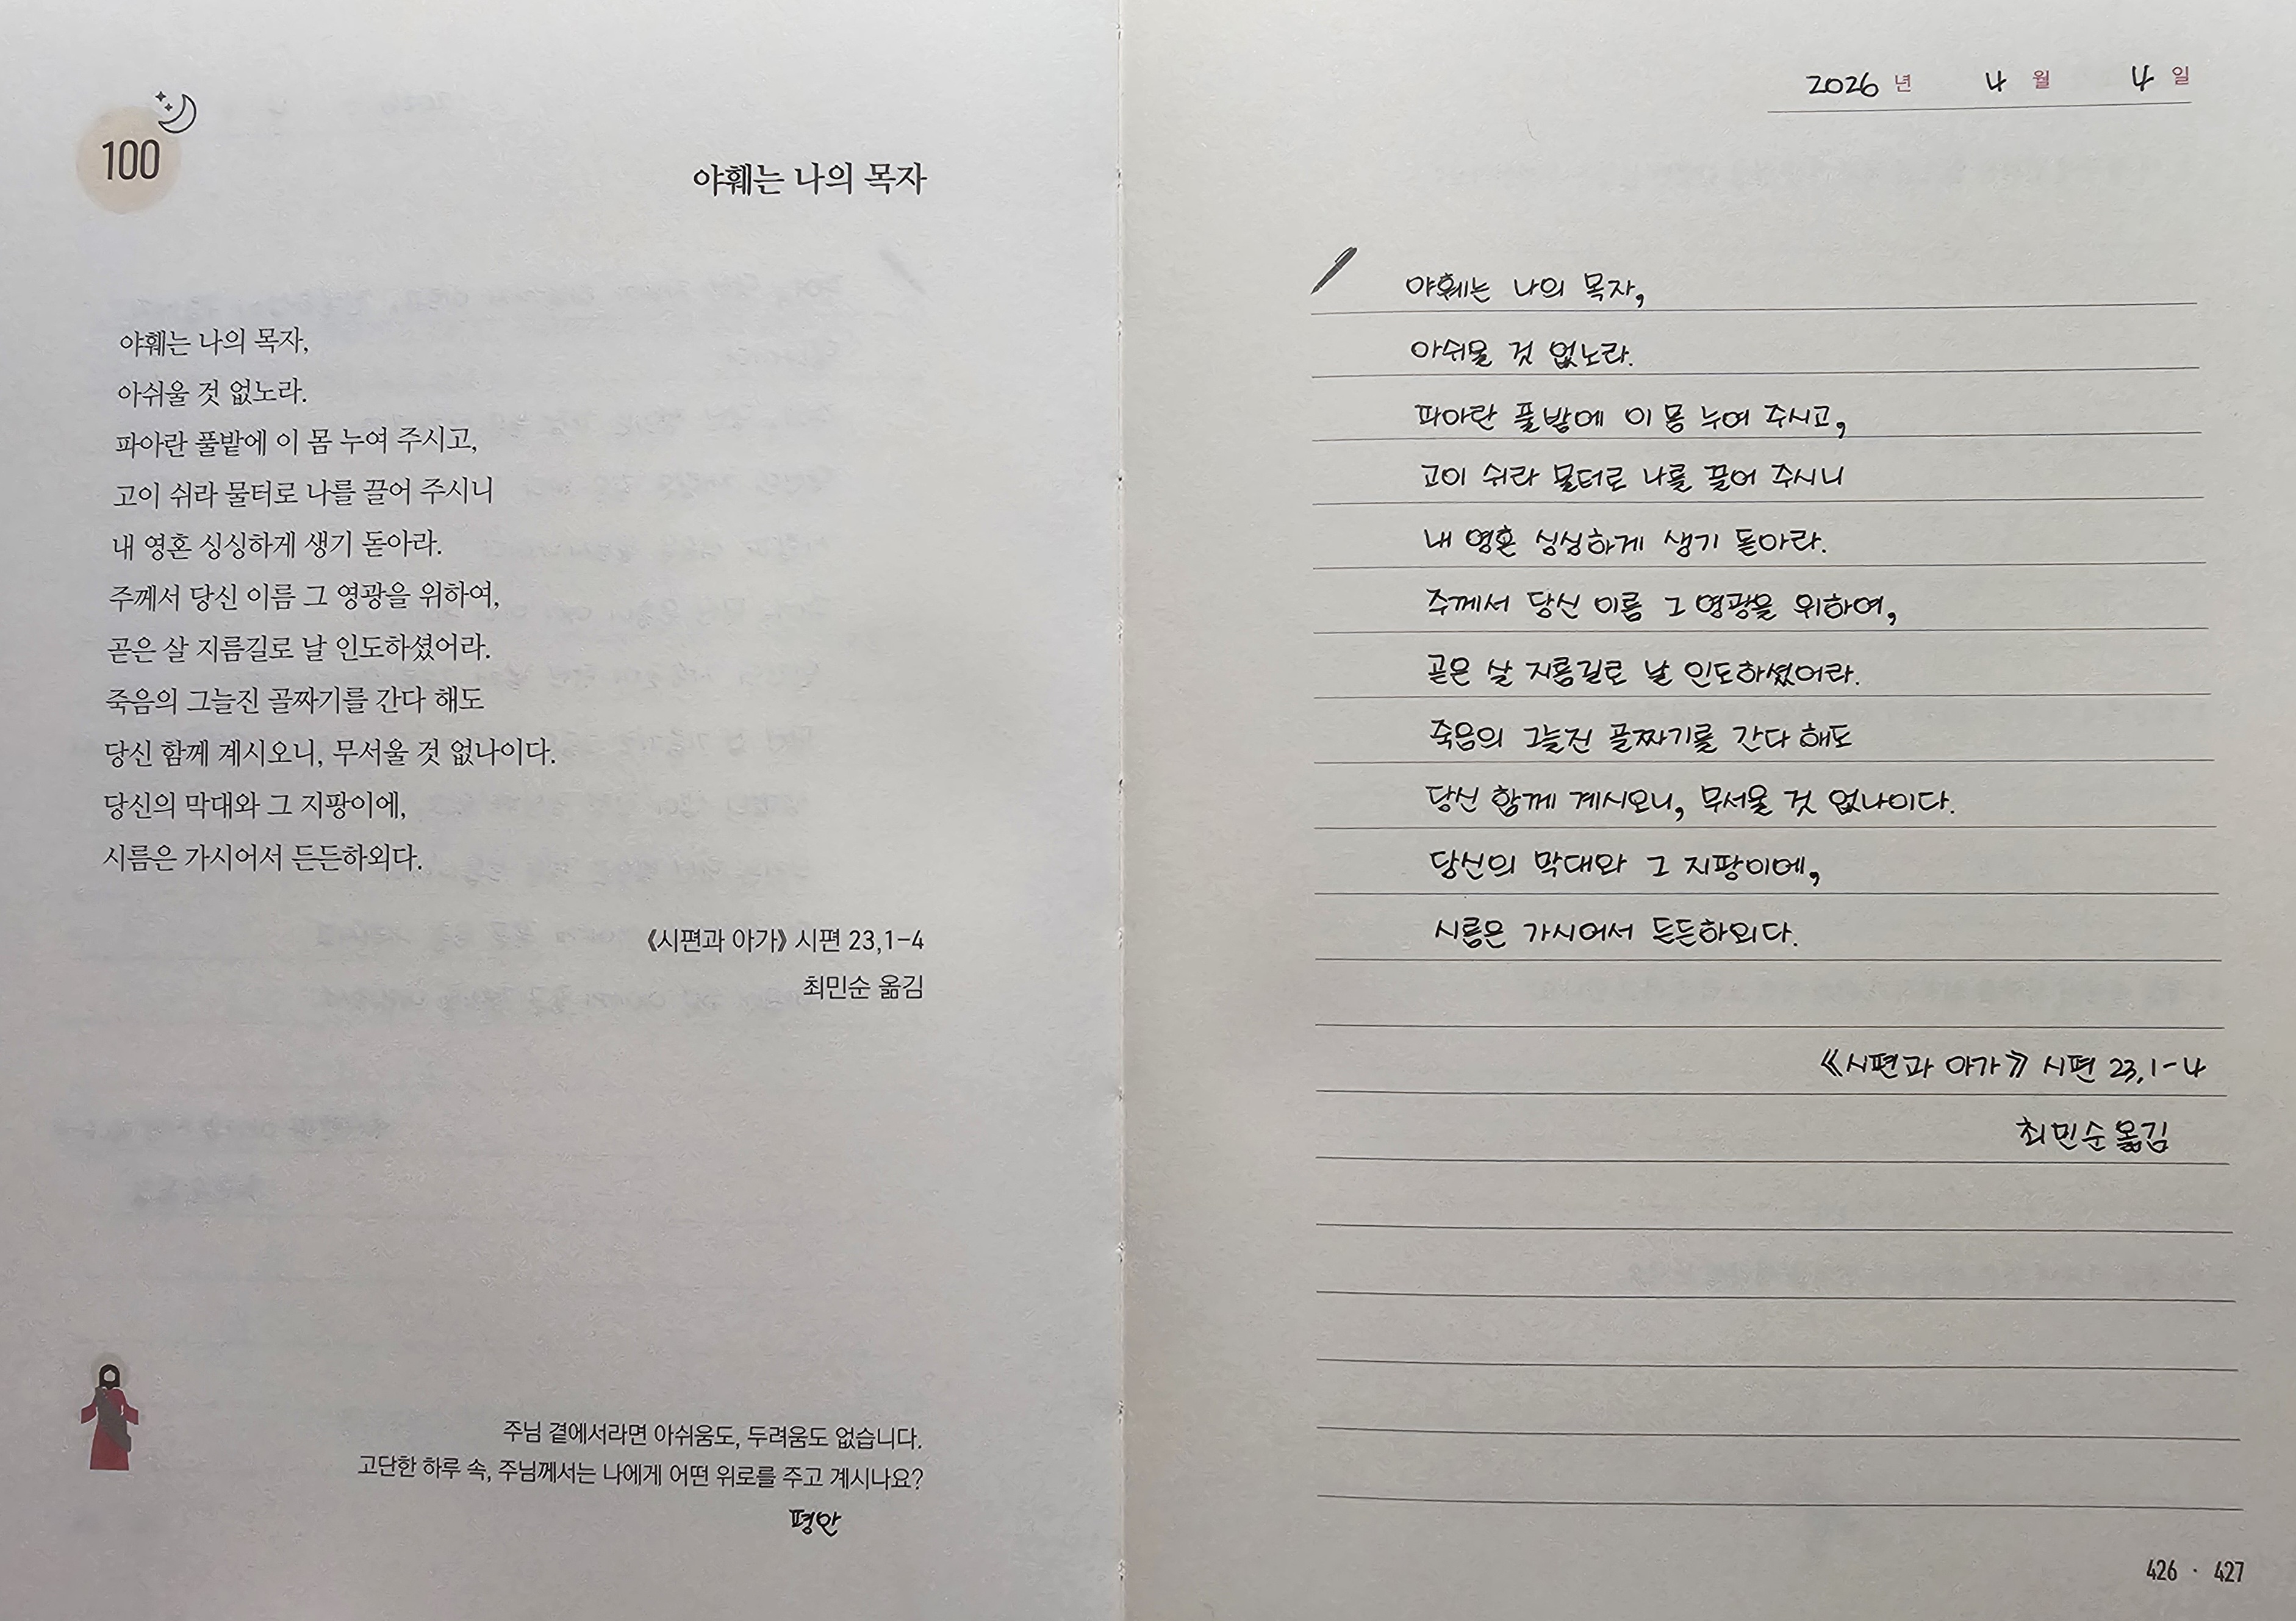 100
야훼는 나의 목자
야훼는 나의 목자,
아쉬울 것 없노라.
파아란 풀밭에 이 몸 누여 주시고,
고이 쉬라 물터로 나를 끌어 주시니
내 영혼 싱싱하게 생기 돋아라.
주께서 당신 이름 그 영광을 위하여,
곧은 살 지름길로 날 인도하셨어라.
죽음의 그늘진 골짜기를 간다 해도
당신 함께 계시오니, 무서울 것 없나이다.
당신의 막대와 그 지팡이에,
시름은 가시어서 든든하외다.
《시편과 아가》 시편 23,1-4
최민순 옮김
주님 곁에서라면 아쉬움도, 두려움도 없습니다.
고단한 하루 속, 주님께서는 나에게 어떤 위로를 주고 계시나요?
평안
2026 년 4 월 4 일
야훼는 나의 목자,
아쉬울 것 없노라.
파아란 풀밭에 이 몸 누여 주시고,
고이 쉬라 물터로 나를 끌어 주시니
내 영혼 싱싱하게 생기 돋아라.
주께서 당신 이름 그 영광을 위하여,
곧은 살 지름길로 날 인도하셨어라.
죽음의 그늘진 골짜기를 간다 해도
당신 함께 계시오니, 무서울 것 없나이다.
당신의 막대와 그 지팡이에,
시름은 가시어서 든든하외다.
《시편과 아가》 시편 23,1-4
최민순 옮김
426 · 427